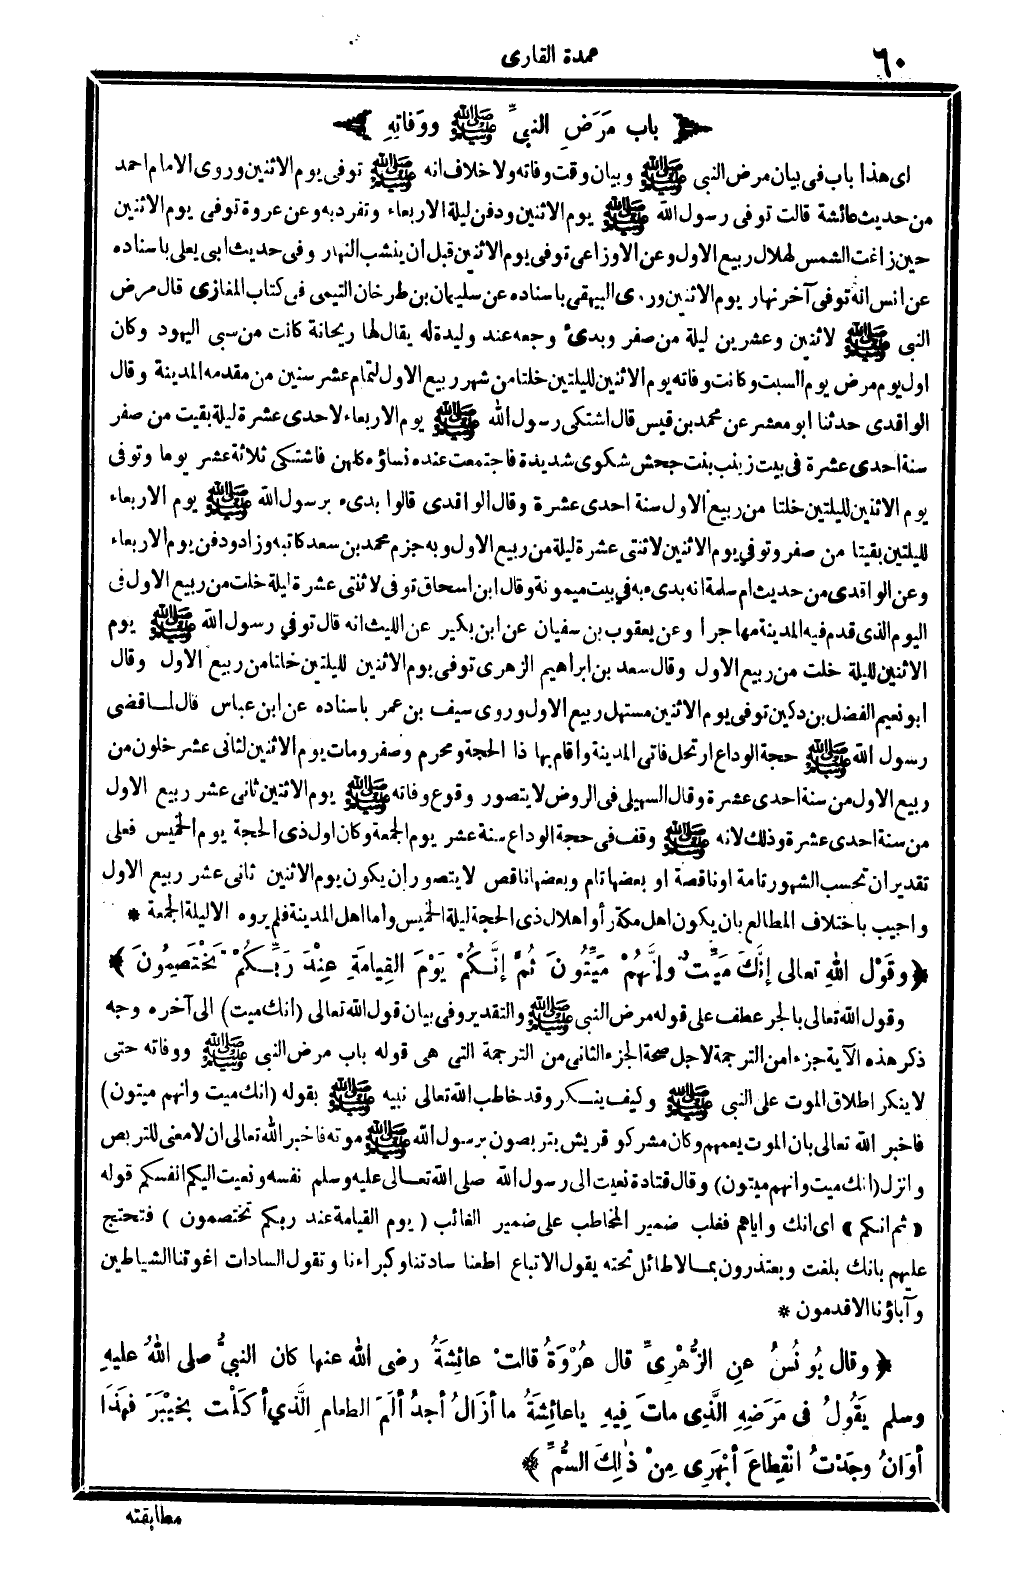 ٦٠
عمدة القارى
﴿ باب مَرَضِ النبيِّ ﷺ ووَفاتِهِ ﴾
اى هذا باب فى بيان مرض النبى ﷺ وبيان وقت وفاته ولا خلاف انه ﷺ توفى يوم الاثنين وروى الامام احمد
من حديث عائشة قالت توفى رسول الله ﷺ يوم الاثنين ودفن ليلة الاربعاء وتفرد به وعن عروة توفى يوم الاثنين
حين زاغت الشمس لهلال ربيع الاول وعن الاوزاعى توفى يوم الاثنين قبل ان ينشب النهار وفى حديث ابى يعلى باسناده
عن انس انه توفى آخر نهار يوم الاثنين وروى البيهقى باسناده عن سليمان بن طرخان التيمى فى كتاب المغازى قال مرض
النبى ﷺ لاثنين وعشرين ليلة من صفر وبدئ وجعه عند وليدة له يقال لها ريحانة كانت من سبى اليهود وكان
اول يوم مرض يوم السبت وكانت وفاته يوم الاثنين لليلتين خلتا من شهر ربيع الاول لتمام عشر سنين من مقدمه المدينة وقال
الواقدى حدثنا ابو معشر عن محمد بن قيس قال اشتكى رسول الله ﷺ يوم الاربعاء لاحدى عشرة ليلة بقيت من صفر
سنة احدى عشرة فى بيت زينب بنت جحش شكوى شديدة فاجتمعت عنده نساؤه كلهن فاشتكى ثلاثة عشر يوما وتوفى
يوم الاثنين لليلتين خلتا من ربيع الاول سنة احدى عشرة وقال الواقدى قالوا بدىء برسول الله ﷺ يوم الاربعاء
لليلتين بقيتا من صفر وتوفي يوم الاثنين لاثنتى عشرة ليلة من ربيع الاول وبه جزم محمد بن سعد كاتبه وزاد ودفن يوم الاربعاء
وعن الواقدى من حديث ام سلمة انه بدىء به في بيت ميمونة وقال ابن اسحاق توفى لاثنتى عشرة ليلة خلت من ربيع الاول فى
اليوم الذى قدم فيه المدينة مهاجرا وعن يعقوب بن سفيان عن ابن بكير عن الليث انه قال توفي رسول الله ﷺ يوم
الاثنين لليلة خلت من ربيع الاول وقال سعد بن ابراهيم الزهرى توفى يوم الاثنين لليلتين خلتا من ربيع الاول وقال
ابو نعيم الفضل بن دكين توفى يوم الاثنين مستهل ربيع الاول وروى سيف بن عمر باسناده عن ابن عباس قال لما قضى
رسول الله ﷺ حجة الوداع ارتحل فاتى المدينة واقام بها ذا الحجة ومحرم وصفر ومات يوم الاثنين لثانى عشر خلون من
ربيع الاول من سنة احدى عشرة وقال السهيلى فى الروض لا يتصور وقوع وفاته ﷺ يوم الاثنين ثانى عشر ربيع الاول
من سنة احدى عشرة وذلك لانه ﷺ وقف فى حجة الوداع سنة عشر يوم الجمعة وكان اول ذى الحجة يوم الخميس فعلى
تقدير ان تحسب الشهور تامة او ناقصة او بعضها تام وبعضها ناقص لا يتصور ان يكون يوم الاثنين ثانى عشر ربيع الاول
واجيب باختلاف المطالع بان يكون اهل مكة رأوا هلال ذى الحجة ليلة الخميس واما اهل المدينة فلم يروه الا ليلة الجمعة *
﴿ وقَوْلِ اللهِ تعالى إِنَّكَ مَيِّتٌ وإنَّهُمْ مَيِّتُونَ ثُمَّ إِنَّكُمْ يَوْمَ القِيامَةِ عِنْدَ رَبِّكُمْ تَخْتَصِمُونَ ﴾
وقول الله تعالى بالجر عطف على قوله مرض النبى ﷺ والتقدير وفى بيان قول الله تعالى (انك ميت) الى آخره وجه
ذكر هذه الآية جزءا من الترجمة لاجل صحة الجزء الثانى من الترجمة التى هى قوله باب مرض النبى ﷺ ووفاته حتى
لا ينكر اطلاق الموت على النبى ﷺ وكيف ينكر وقد خاطب الله تعالى نبيه ﷺ بقوله (انك ميت وانهم ميتون)
فاخبر الله تعالى بان الموت يعمهم وكان مشركو قريش يتربصون برسول الله ﷺ موته فاخبر الله تعالى ان لا معنى للتربص
وانزل (انك ميت وانهم ميتون) وقال قتادة نعيت الى رسول الله صلى الله تعالى عليه وسلم نفسه ونعيت اليكم انفسكم قوله
« ثم انكم » اى انك واياهم فغلب ضمير المخاطب على ضمير الغائب ( يوم القيامة عند ربكم تختصمون ) فتحتج
عليهم بانك بلغت ويعتذرون بما لا طائل تحته يقول الاتباع اطعنا سادتنا وكبراءنا وتقول السادات اغوتنا الشياطين
وآباؤنا الاقدمون *
﴿ وقال يُونُسُ عنِ الزُّهْرِيِّ قال عُرْوَةُ قالتْ عائِشَةُ رضى الله عنها كان النبيُّ صلى اللهُ عليهِ
وسلم يَقُولُ فى مَرَضِهِ الَّذِى ماتَ فِيهِ ياعائِشَةُ ما أزَالُ أجِدُ ألَمَ الطعامِ الَّذِي أكَلْتُ بِخَيْبَرَ فهَذَا
أوَانُ وجَدْتُ انْقِطاعَ أبْهَرِى مِنْ ذٰلِكَ السُّمِّ * ﴾
مطابقته